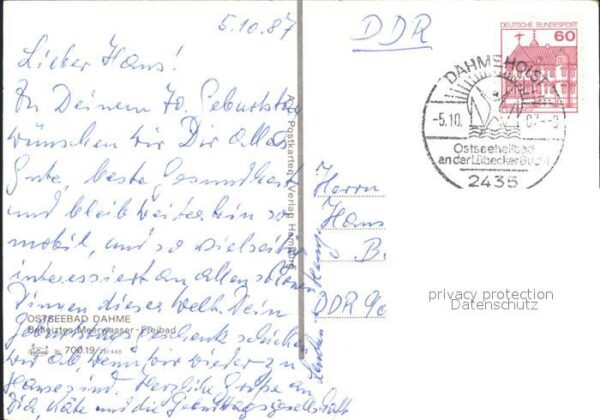 5.10.87
Lieber Hans!
Zu Deinem 70. Geburtstag
wünschen wir Dir alles
Gute, beste Gesundheit
und bleib weiterhin so
mobil, und so vielseitig
interessiert an allen schönen
Dingen dieser Welt. Dein
Geburtstagsgeschenk schicken
wir ab, wenn wir wieder zu
Hause sind. Herzliche Grüße an
Dich, Käte und die Geburtstagsgesellschaft
OSTSEEBAD DAHME
Beheiztes Meerwasser-Freibad
700.19
Postkarten-Verlag Hamburg
DDR
DEUTSCHE BUNDESPOST
60
DAHME HOLST
-5.10.
Ostseeheilbad
an der Lübecker Bucht
2435
Herrn
Hans
B.
DDR 90
privacy protection
Datenschutz